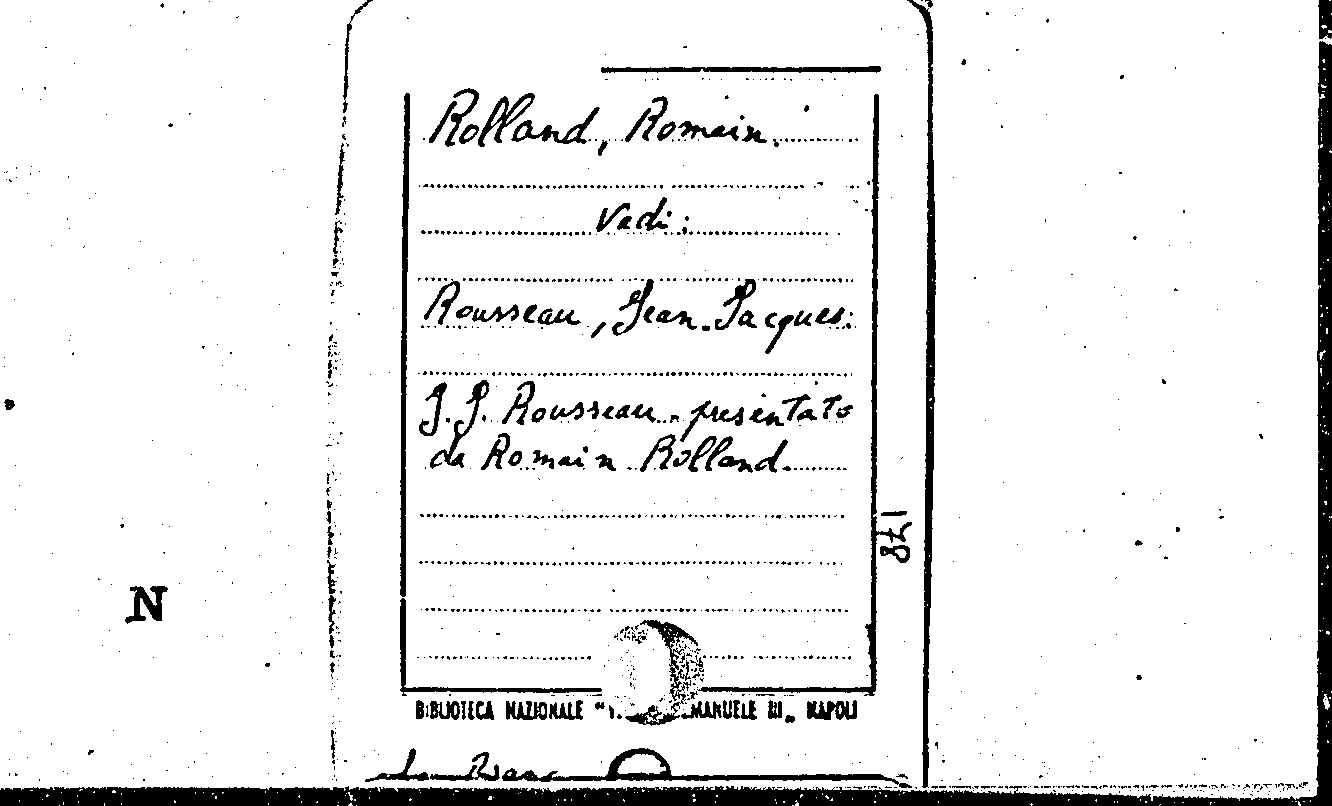 Rolland, Romain.
Vedi:
Rousseau, Jean-Jacques:
J. J. Rousseau - presentato
da Romain Rolland.
178
N
BIBLIOTECA NAZIONALE "V MANUELE III„ NAPOLI